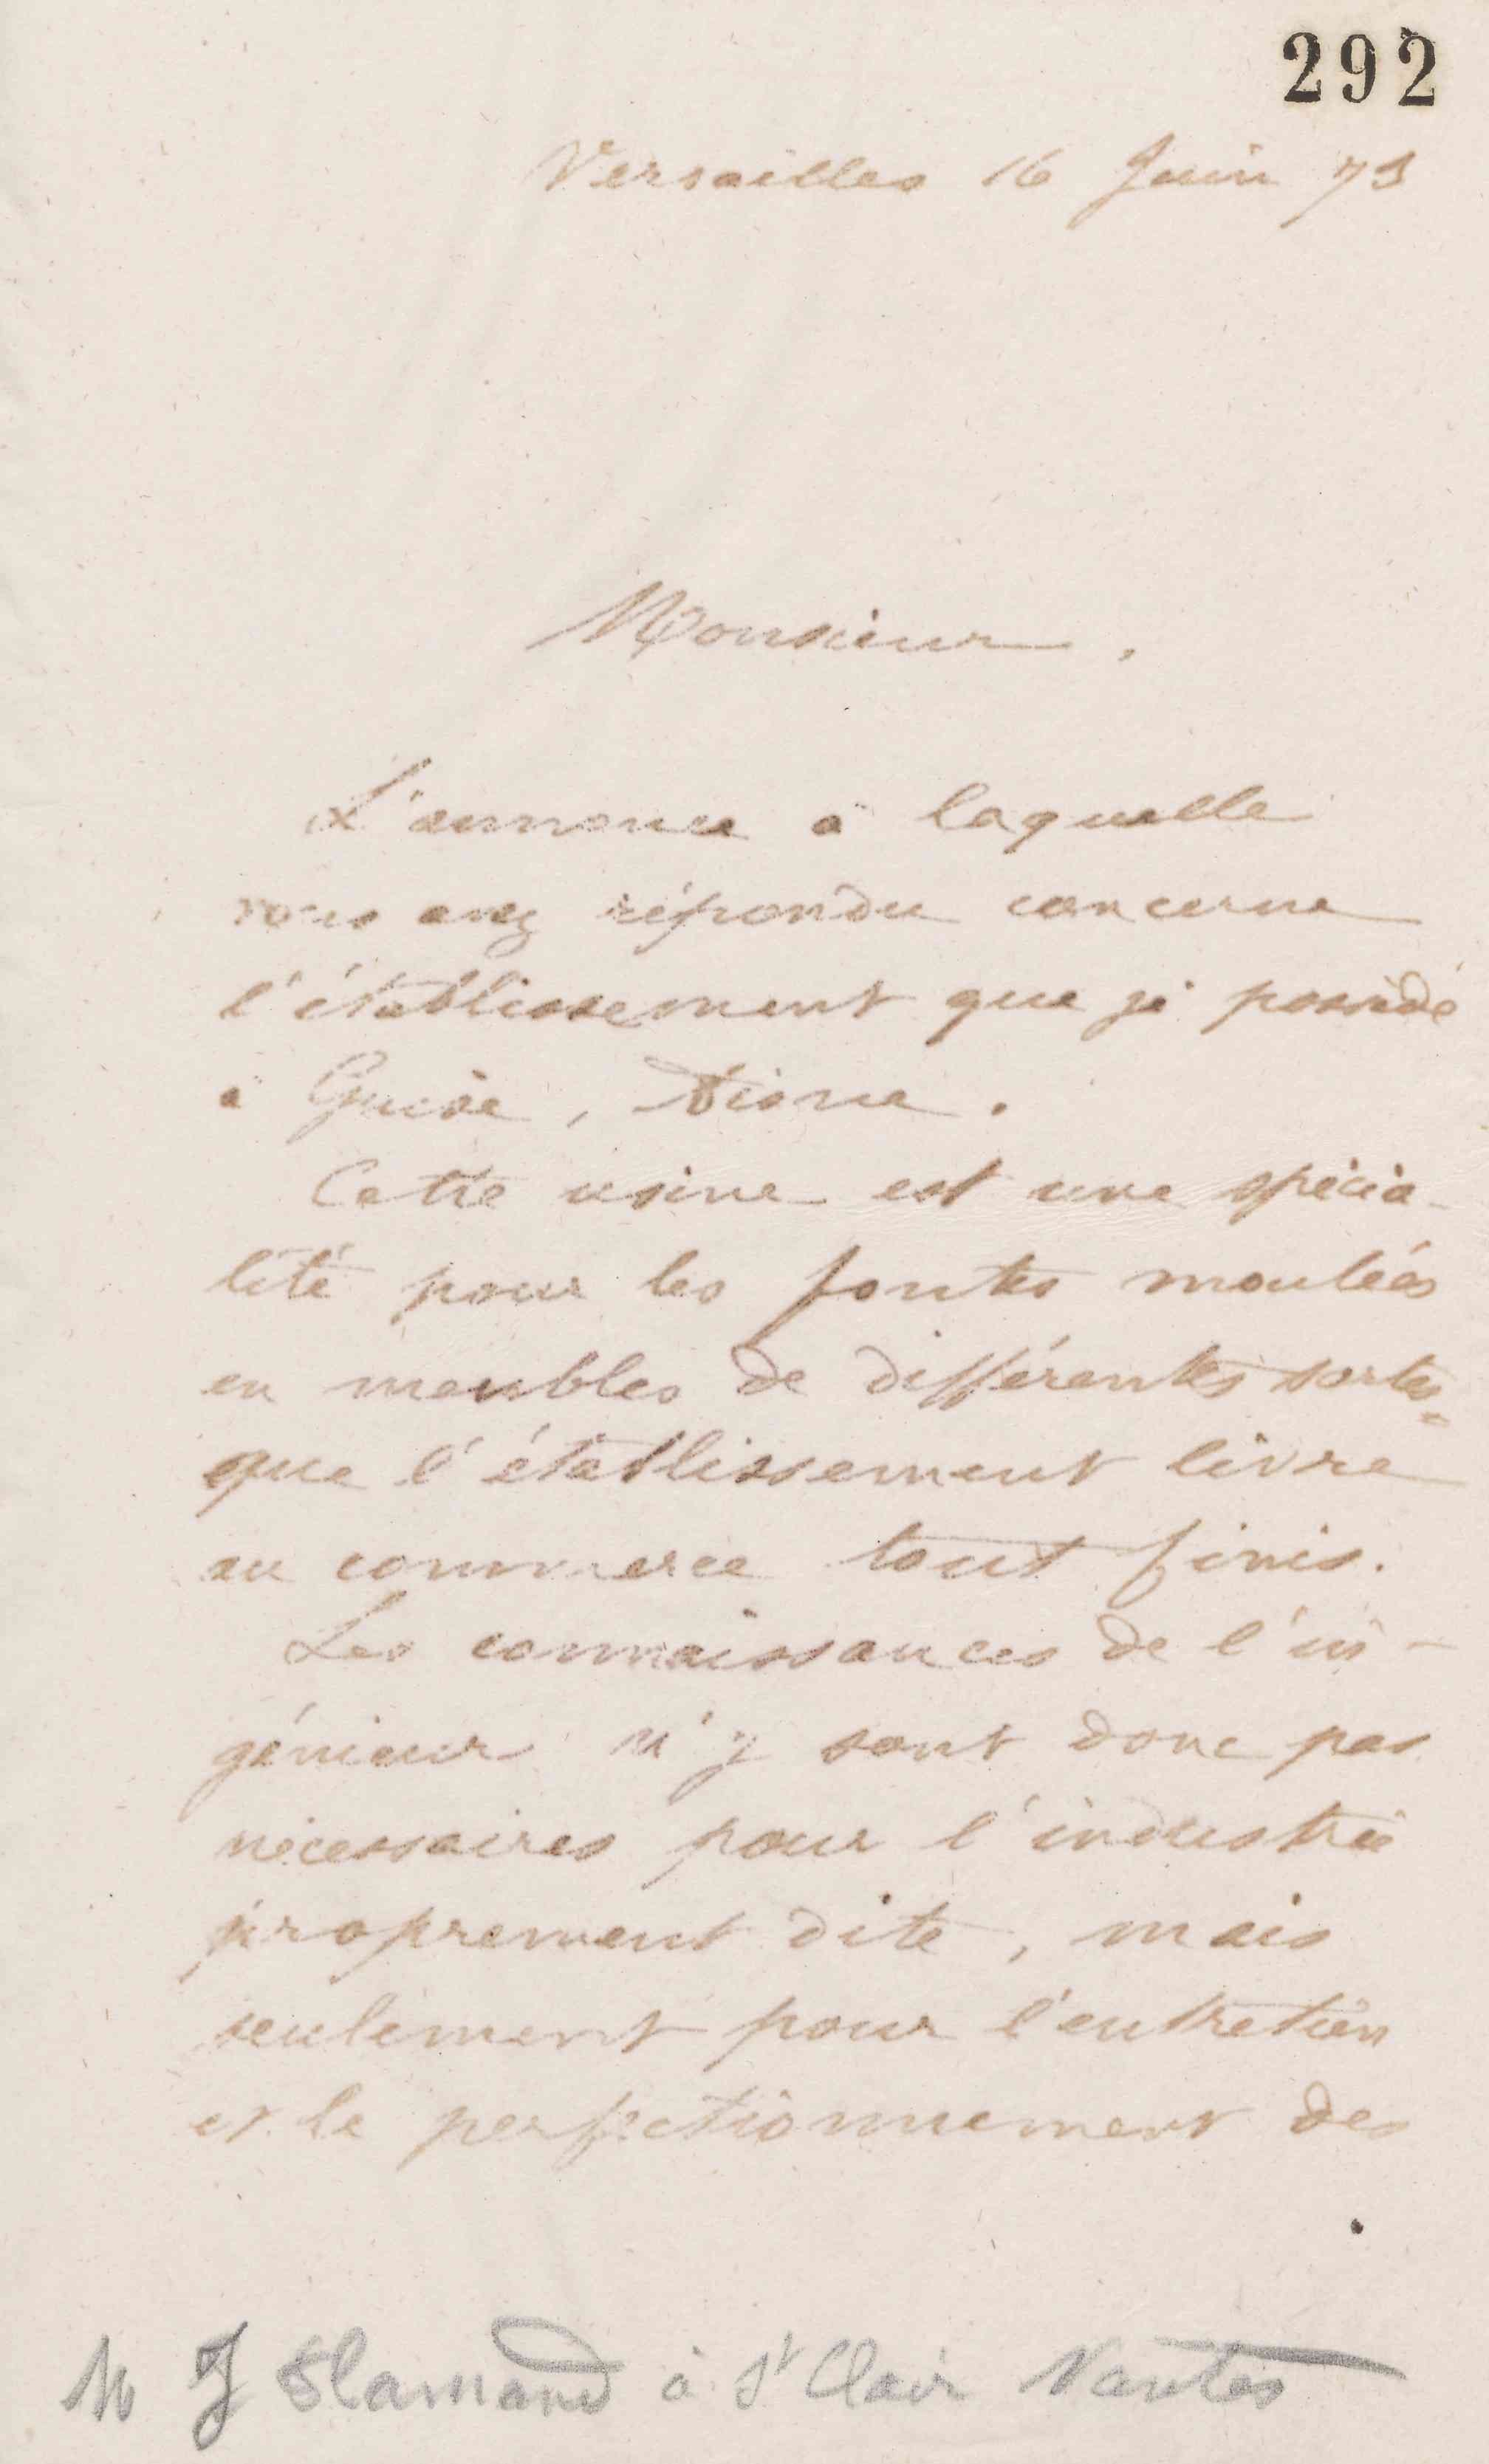 292
Versailles 16 Juin 73
Monsieur,
L'annonce à laquelle
vous avez répondu concerne
l'établissement que je possède
à Guise, Aisne.
Cette usine est une spécia-
lité pour les fontes moulées
en meubles de différentes sortes
que l'établissement livre
au commerce tout finis.
Les connaissances de l'in-
génieur n'y sont donc pas
nécessaires pour l'industrie
proprement dite, mais
seulement pour l'entretien
et le perfectionnement des
M J Flamand à St Clair Nantes